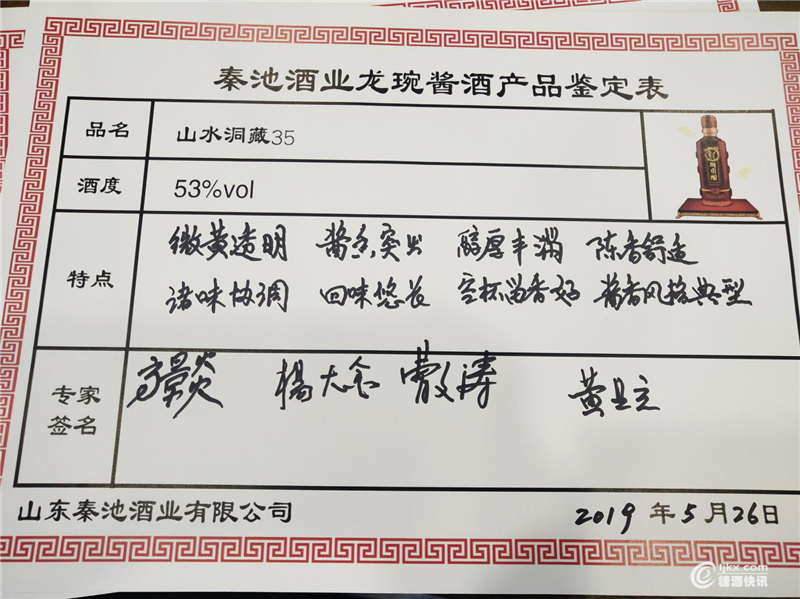 秦池酒业龙琬酱酒产品鉴定表
品名 山水洞藏35
酒度 53%vol
特点
微黄透明 酱香突出 醇厚丰满 陈香舒适
诸味协调 回味悠长 空杯留香好 酱香风格典型
专家
签名
杨大金 曹文涛
山东秦池酒业有限公司
2019年5月26日
tjkx.com
糖酒快讯